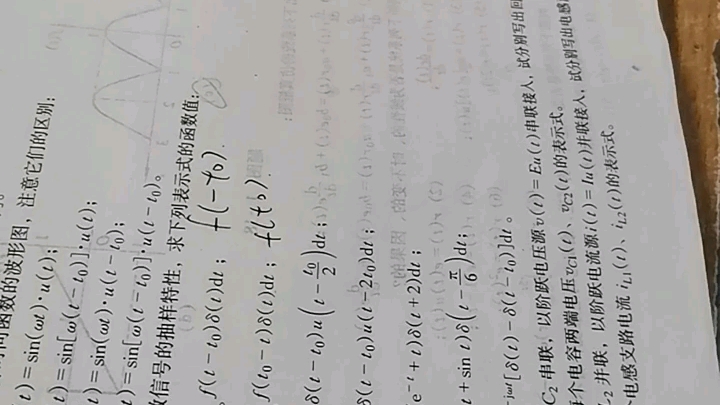 时间函数的波形图，注意它们的区别：
t)=sin(ωt)·u(t)；
t)=sin[ω(t-t₀)]·u(t)；
t)=sin(ωt)·u(t-t₀)；
t)=sin[ω(t-t₀)]·u(t-t₀)。
信号的抽样特性，求下列表示式的函数值：
f(t-t₀)δ(t)dt； f(-t₀).
f(t₀-t)δ(t)dt； f(t₀).
δ(t-t₀)u(t-t₀/2)dt；
δ(t-t₀)u(t-2t₀)dt；
e⁻ᵗ+t)δ(t+2)dt；
t+sin t)δ(t-π/6)dt；
-jωt[δ(t)-δ(t-t₀)]dt。
C₂串联，以阶跃电压源v(t)=Eu(t)串联接入，试分别写出回
个电容两端电压v_C1(t)、v_C2(t)的表示式。
并联，以阶跃电流源i(t)=Iu(t)并联接入，试分别写出电感
电感支路电流i_L1(t)、i_L2(t)的表示式。